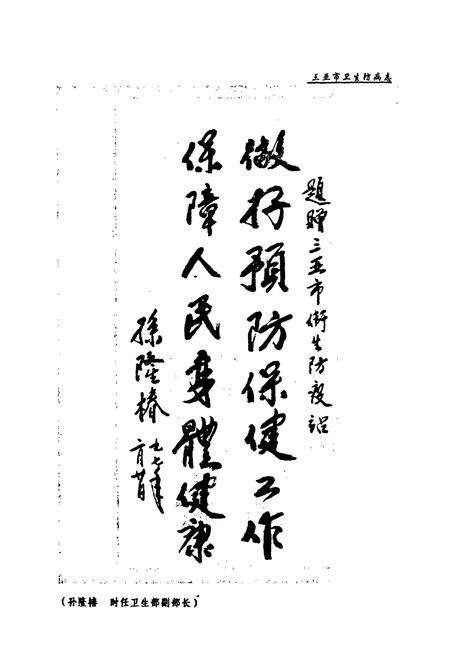 三亚市卫生防病志
題贈三亚市衛生防疫站
做好預防保健工作
保障人民身體健康
孫隆椿
(孙隆椿 时任卫生部副部长)